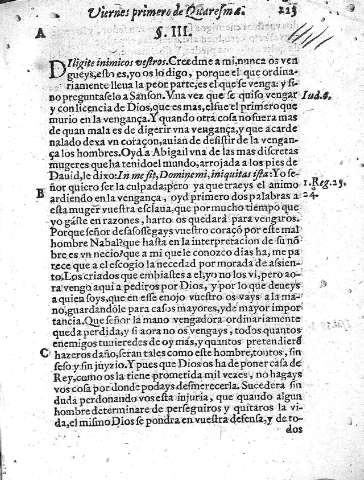 Viernes primero de Quaresma. 223
A §. III.
DIligite inimicos vestros. Creedme a mi, nunca os ven
gueys, esto es, yo os lo digo, porque el que ordina-
riamente lleua la peor parte, es el que se venga: y si
no preguntaselo a Sanson. Vna vez que se quiso vengar Iud.
y con licencia de Dios, que es mas, el fue el primero que
murio en la vengança. Y quando otra cosa no fuera mas
de quan mala es de digerir vna vengança, y que a carde
nalado dexa vn coraçon, auian de desistir de la vengan
ça los hombres. Oyd a Abigail vna de las mas discretas
mugeres que ha tenido el mundo, arrojada a los pies de
Dauid, le dixo: In me sit, Domine mi, iniquitas ista: Yo se-
ñor quiero ser la culpada; pero ya que traeys el animo 1. Reg. 25.
B ardiendo en la vengança, oyd primero dos palabras a 24.
esta muger vuestra esclaua, que por mucho tiempo que
yo gaste en razones, harto os quedará para vengaros.
Porque señor desassossegays vuestro coraçõ por este mal
hombre Nabal? que hasta en la interpretacion de su nõ
bre es vn necio? que a mi que le conozco dias ha, me pa
rece que a el escogio la necedad por morada de assien-
to. Los criados que embiastes a el, yo no los vi, pero ao-
ra vengo aqui a pediros por Dios, y por lo que deueys
a quien soys, que en este enojo vuestro os vays a la ma-
no, guardandole para casos mayores, y de mayor impor
tancia. Que señor la mano vengadora ordinariamente
queda perdida, y si aora no os vengays, todos quantos
enemigos tuuieredes de oy mas, y quantos pretendierẽ
C hazeros daño, seran tales como este hombre, tontos, sin
seso y sin juyzio. Y pues que Dios os ha de poner casa de
Rey, como os la tiene prometida mil vezes, no hagays
vos cosa por donde podays desmerecerla. Sucedera sin
duda perdonando vos esta injuria, que quando algun
hombre determinare de perseguiros y quitaros la vi-
da, el mismo Dios se pondra en vuestra defensa, y de to-
dos